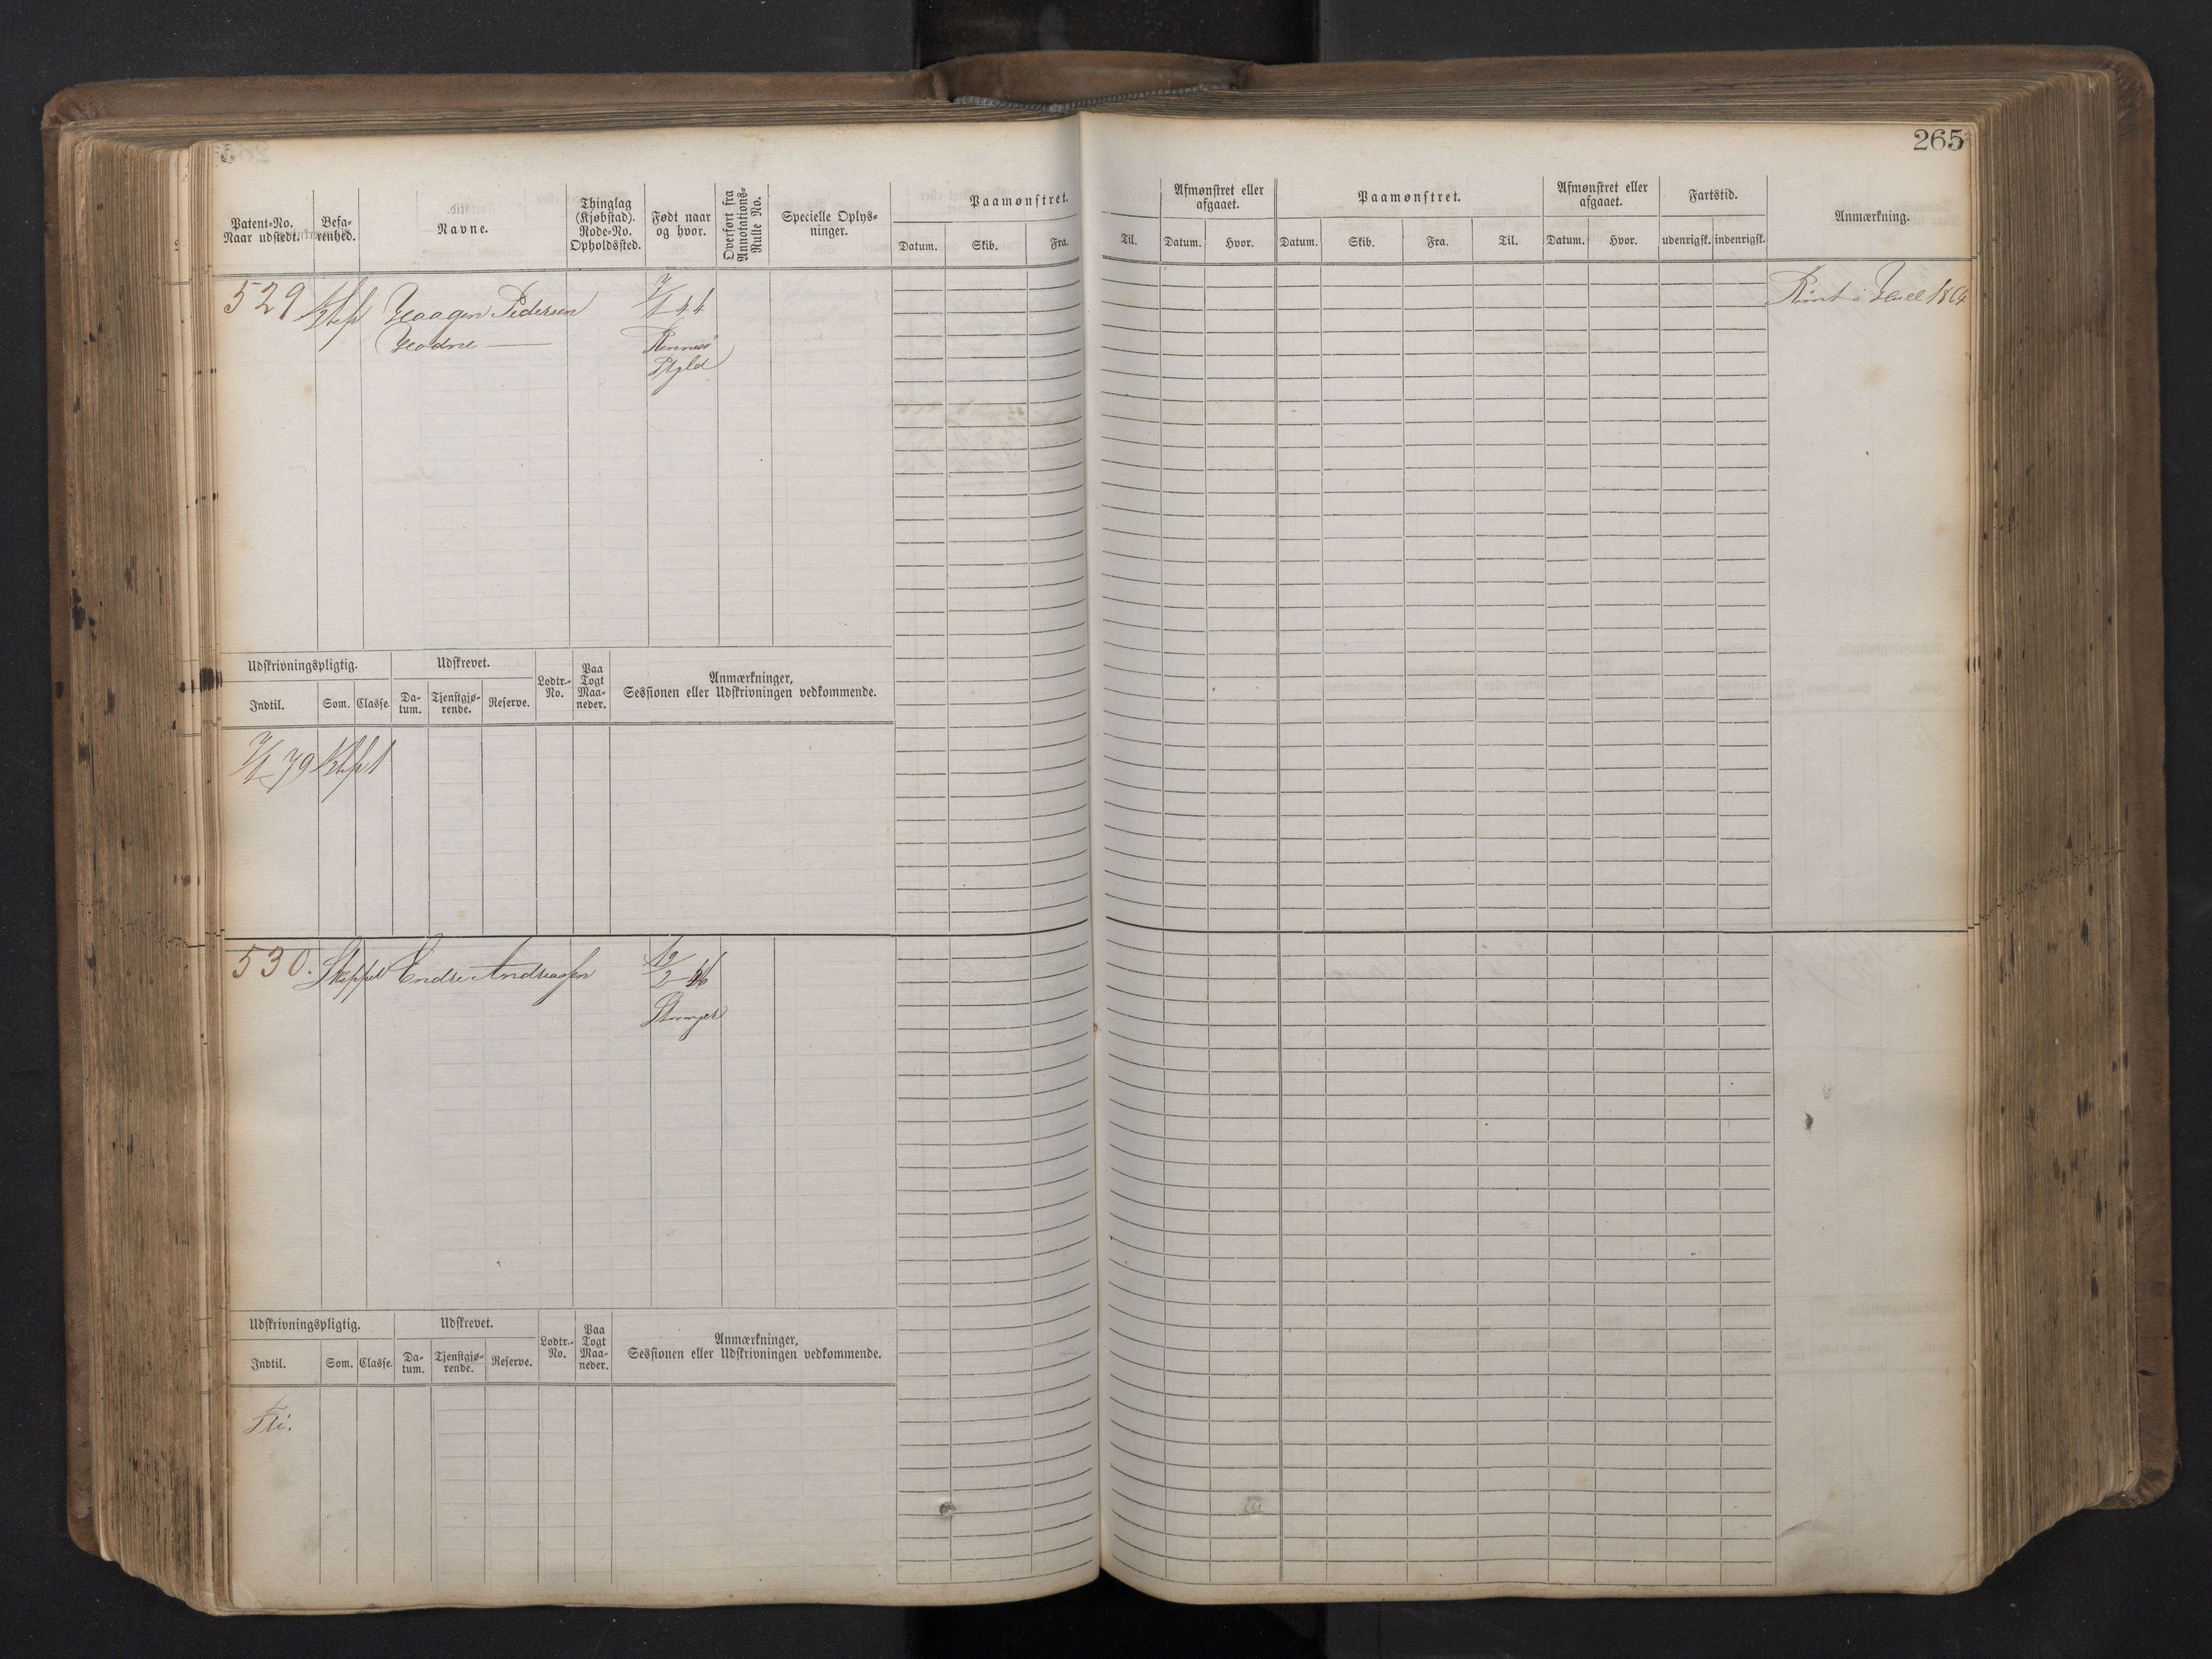 265
Patent-No. Naar udstedt.
Befarenhed.
Navne.
Thinglag (Kjøbstad). Rode-No. Opholdssted.
Født naar og hvor.
Overført fra Annotations-Rulle No.
Specielle Oplysninger.
Paamønstret.
Datum. Skib. Fra.
Til.
Afmønstret eller afgaaet.
Datum. Hvor.
Paamønstret.
Datum. Skib. Fra. Til.
Afmønstret eller afgaaet.
Datum. Hvor.
Fartstid.
udenrigsk. indenrigsk.
Anmærkning.
529 Haagen Pedersen 7/1 44
Hodne Rennesø
Udskrivningspligtig. Udskrevet. Lodtr.-No. Paa Togt Maaneder. Anmærkninger,
Sessionen eller Udskrivningen vedkommende.
Indtil. Som. Classe. Datum. Tjenstgjørende. Reserve.
7/1 79
530. Endre Andreassen
Udskrivningspligtig. Udskrevet. Lodtr.-No. Paa Togt Maaneder. Anmærkninger,
Sessionen eller Udskrivningen vedkommende.
Indtil. Som. Classe. Datum. Tjenstgjørende. Reserve.